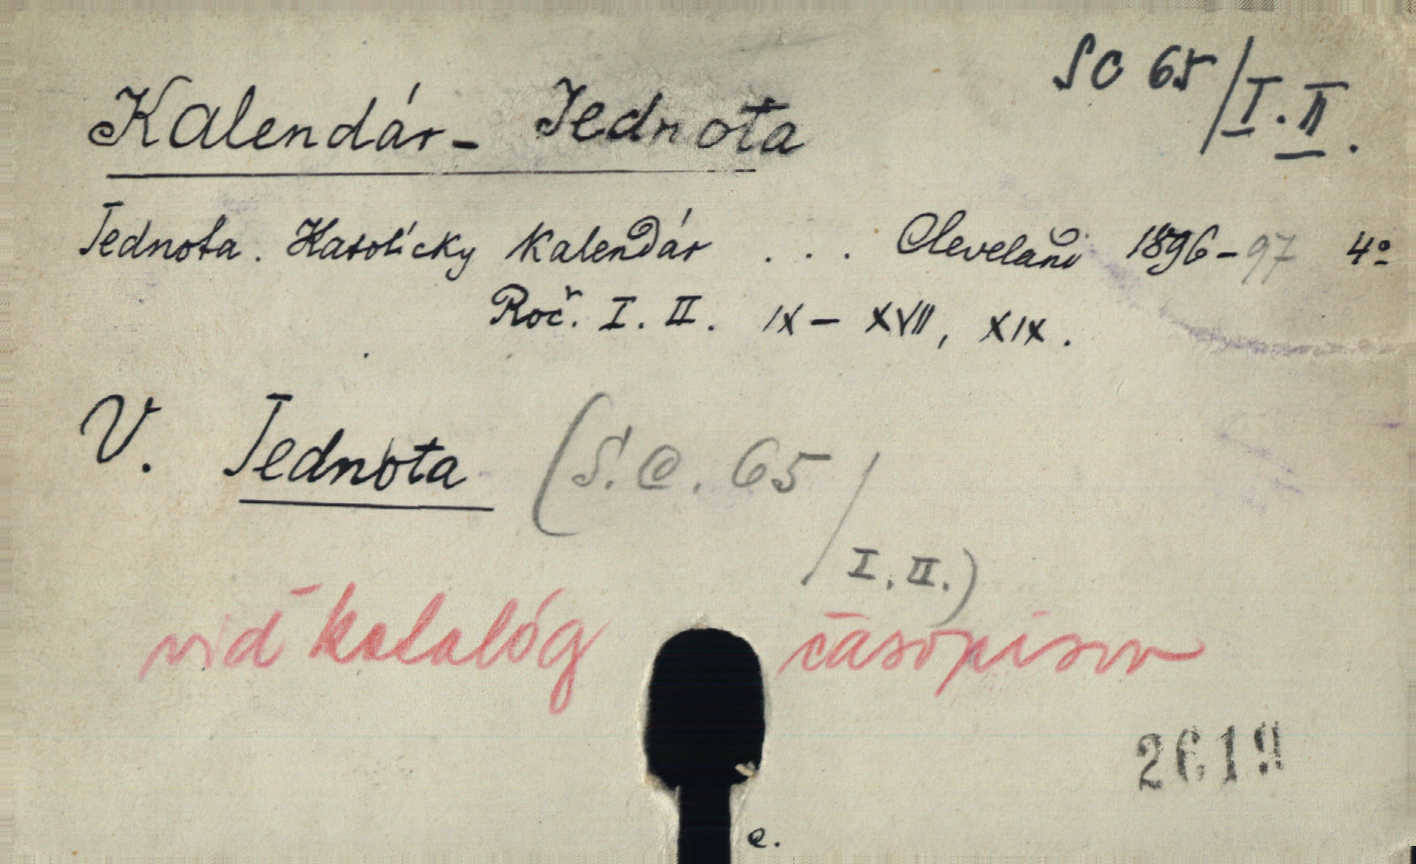 SC 65/I.II.
Kalendár - Jednota
Jednota. Katolícky Kalendár . . . Cleveland 1896-97 4º
Roč. I. II. IX - XVII, XIX.
V. Jednota (S.C. 65/I, II.)
viď katalóg časopisov
2619
e.